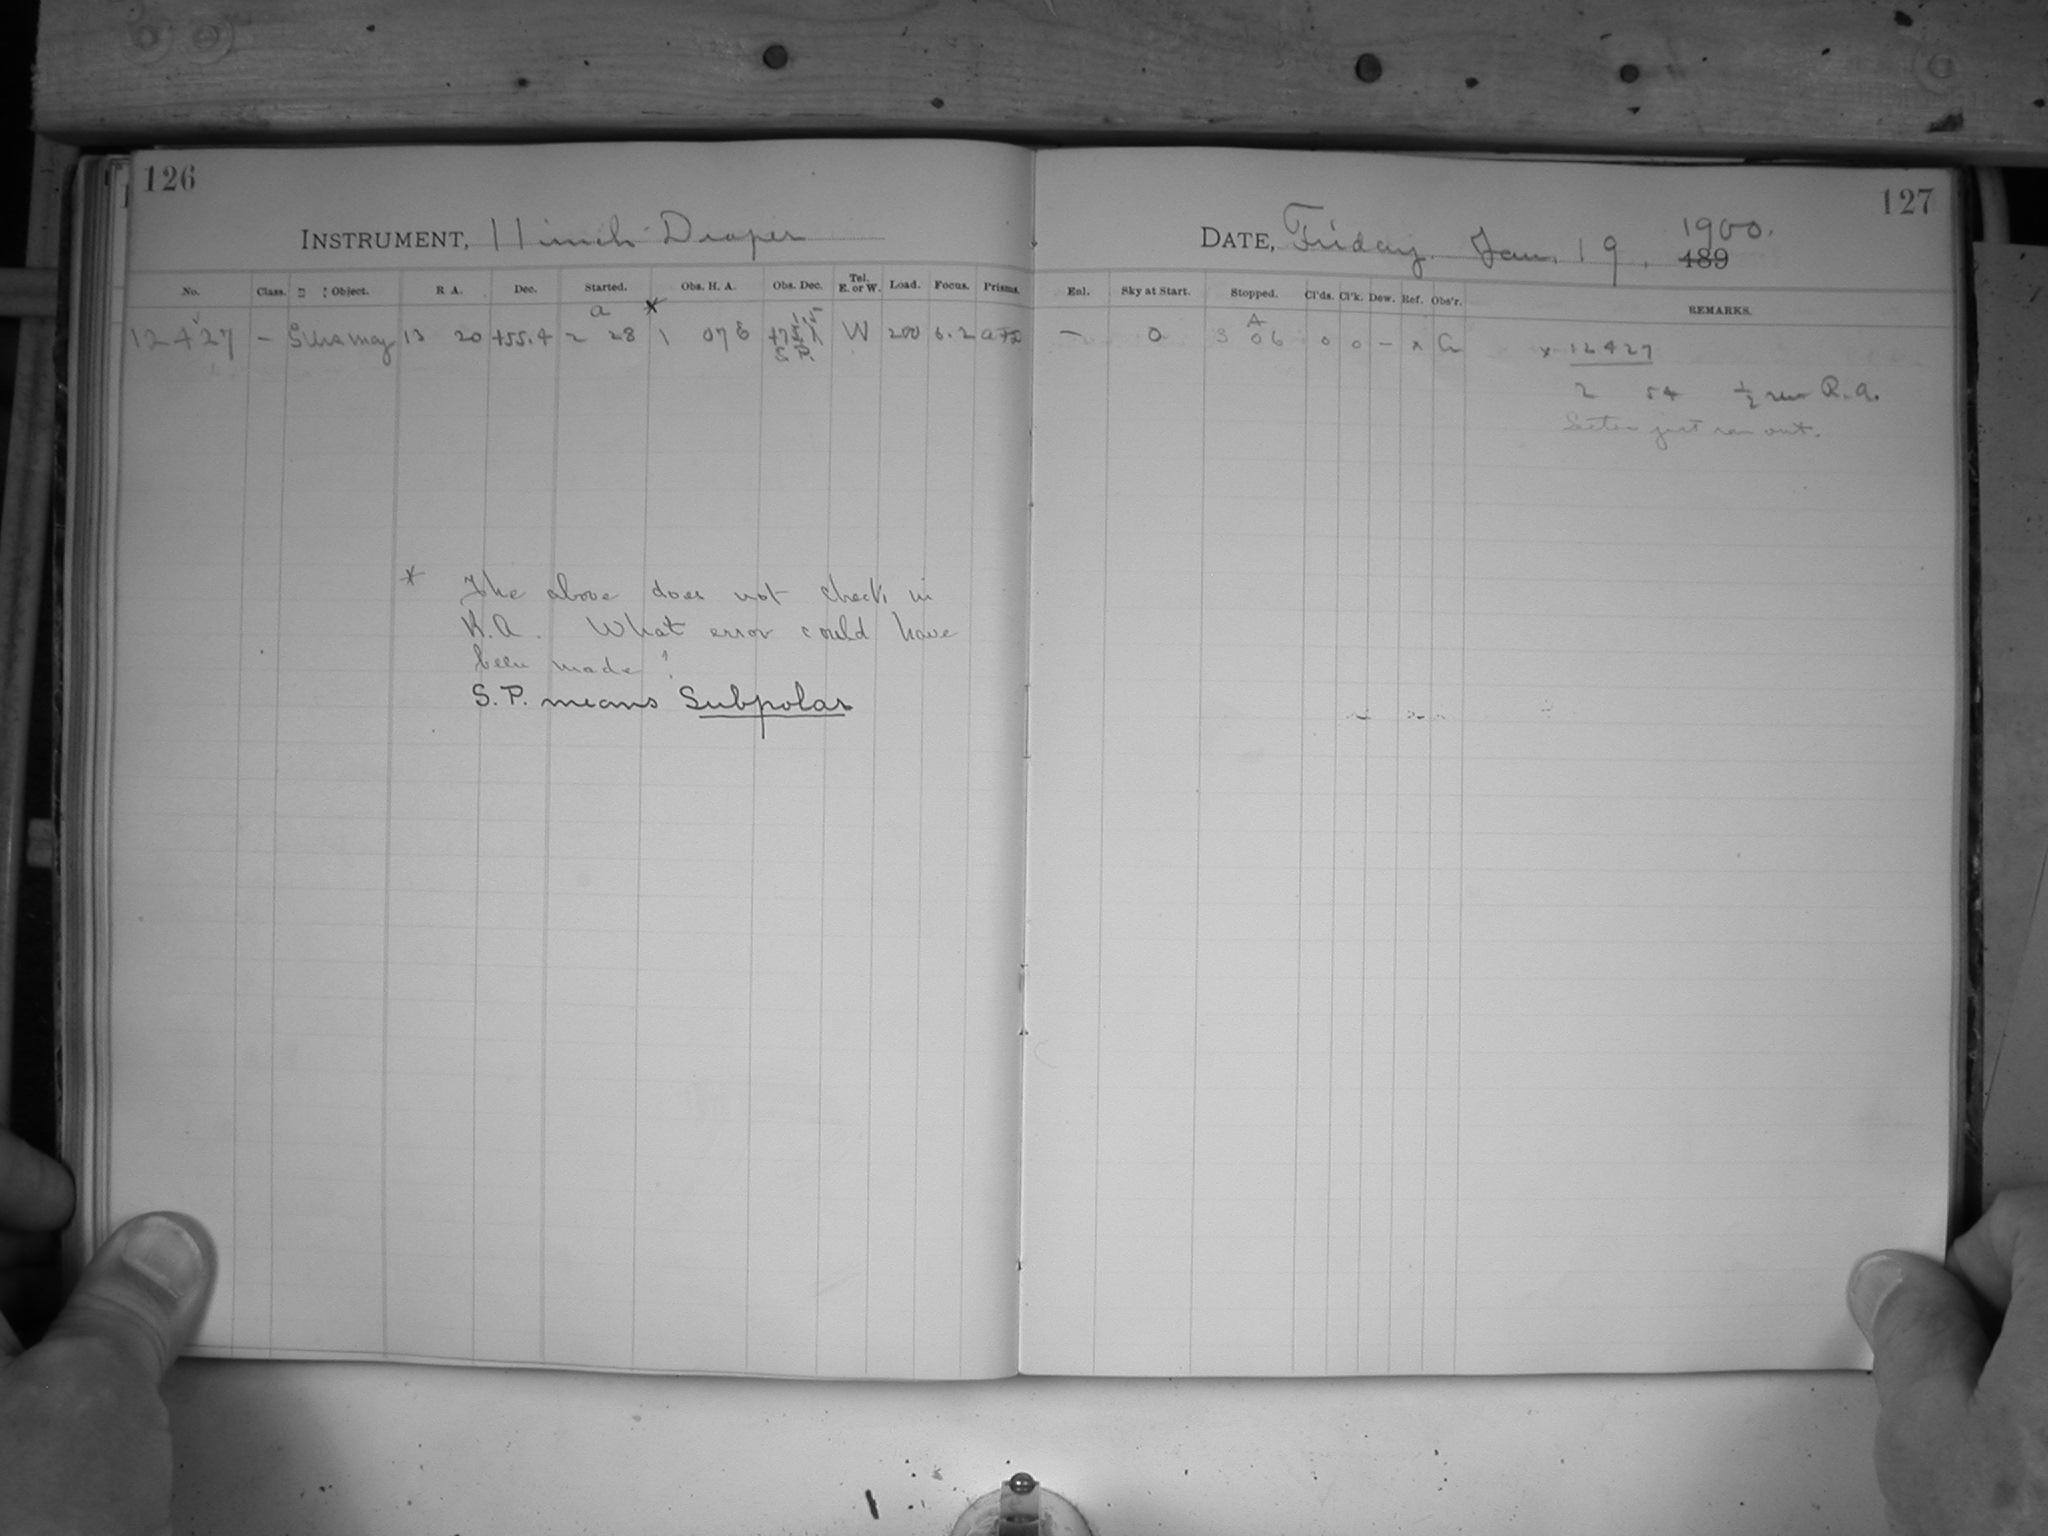 126
127
INSTRUMENT, 11 inch Draper
DATE, Friday. Jan. 19. 1900.
189
No. Class. Object. R A. Dec. Started. Obs. H. A. Obs. Dec. Tel. E. or W. Load. Focus. Prisms. Enl. Sky at Start. Stopped. Cl'ds. Cl'k. Dew. Ref. Obs'r. REMARKS.
a *
12427 – 13 20 +55.4 2 28 1 07 W 200 6.2 – 0 3 06 0 0 – x x 12427
S. P.
2 54 ½ rev R.A.
just ran out.
* The above does not check in
R.A. What error could have
been made?
S. P. means Subpolar